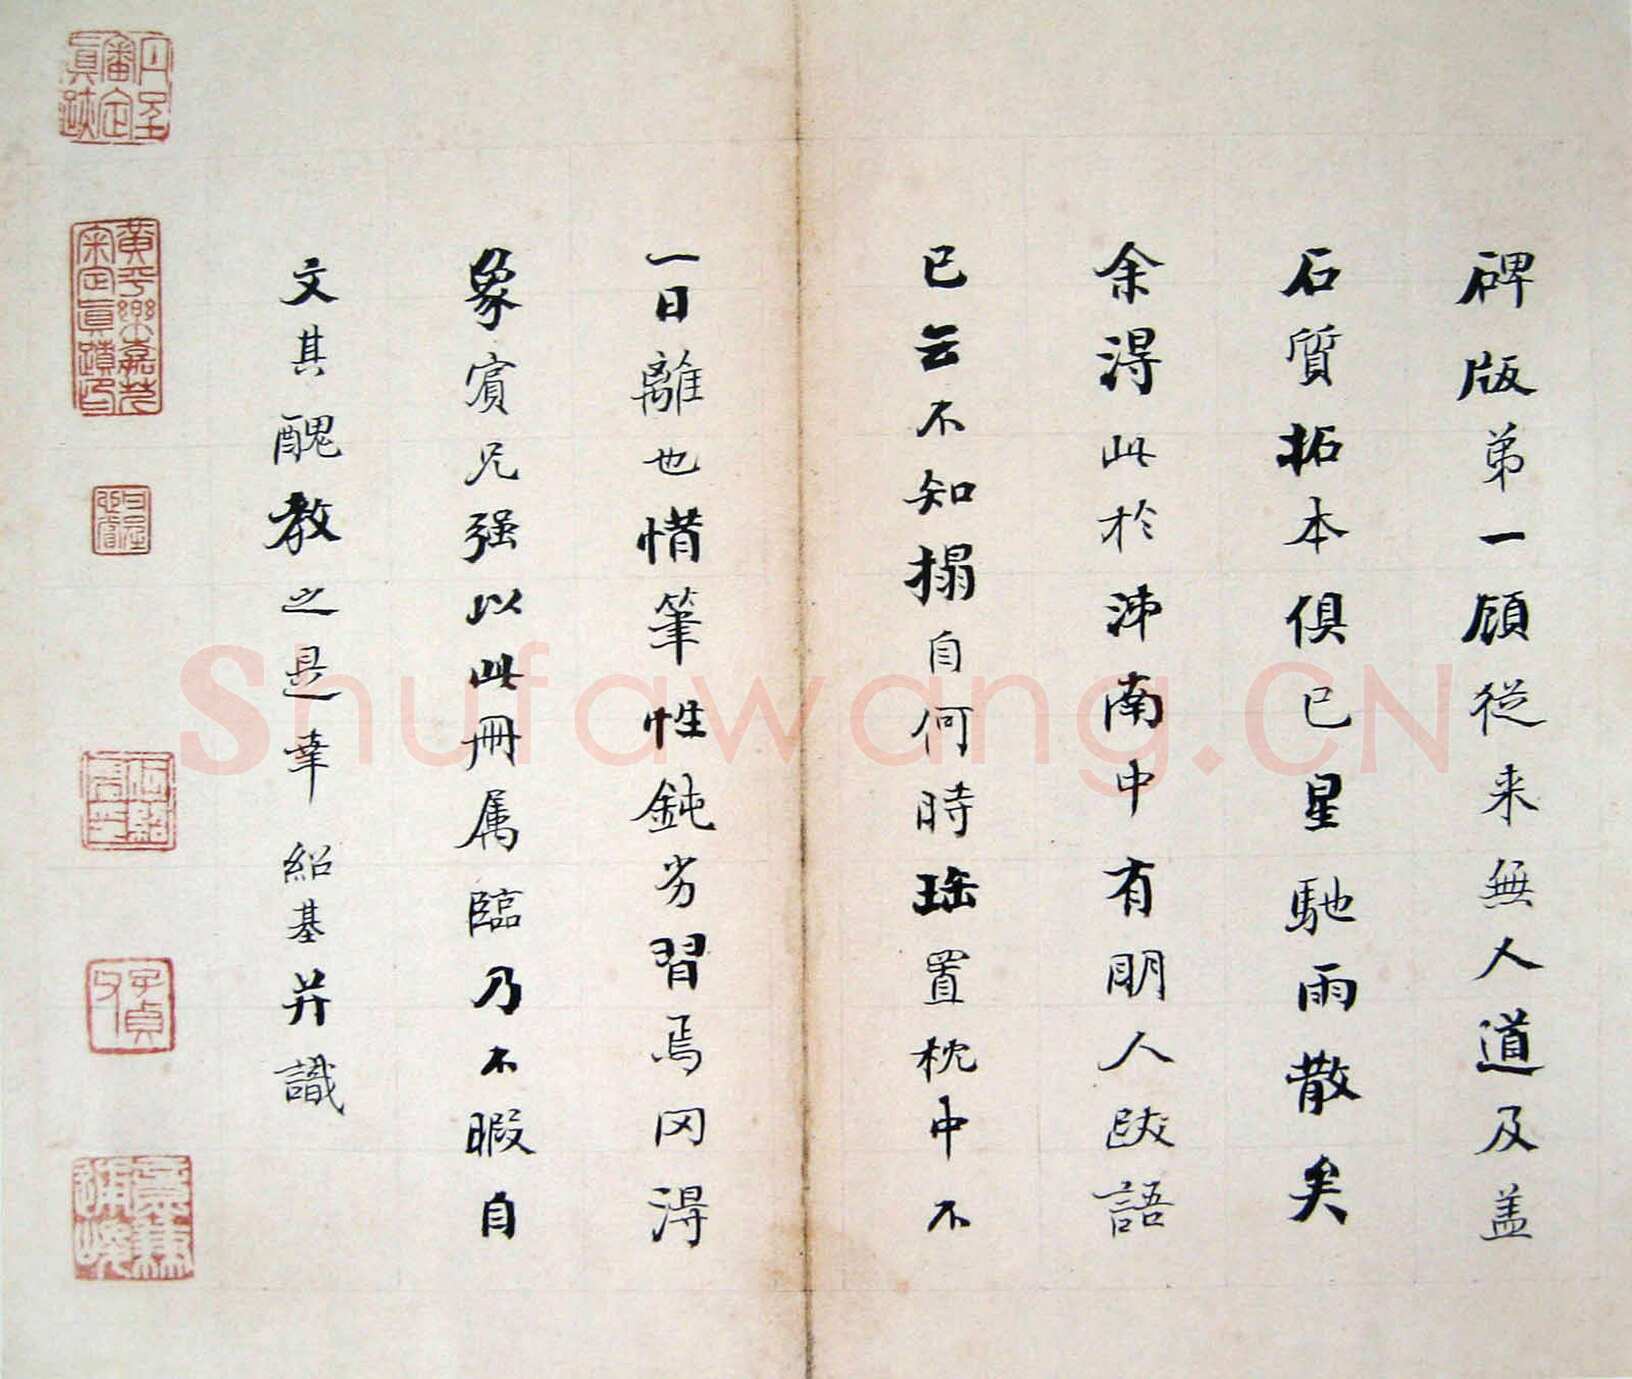 碑版弟一顧從来無人道及盖
石質拓本俱已星馳雨散矣
余淂此於沛南中有朙人跋語
已云不知搨自何時珤置枕中不
一日離也惜筆性鈍劣習焉罔淂
象賓兄强以此冊属臨乃不暇自
文其醜教之是幸 紹基并識
黄平樂嘉荃
宋定真蹟印
子貞
Shufawang.CN